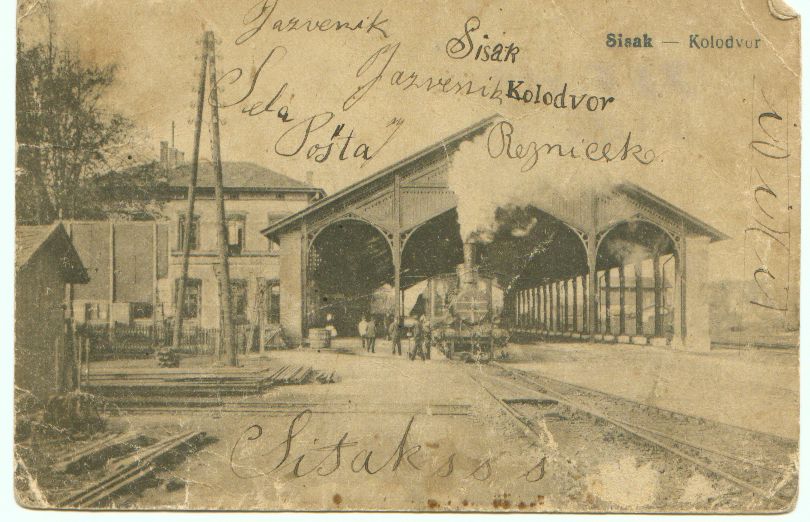 Jazvenik
Sisak — Kolodvor
Sisak
Jazvenik
Kolodvor
Sela
"Pošta"
Reznicek
Sisak s s s